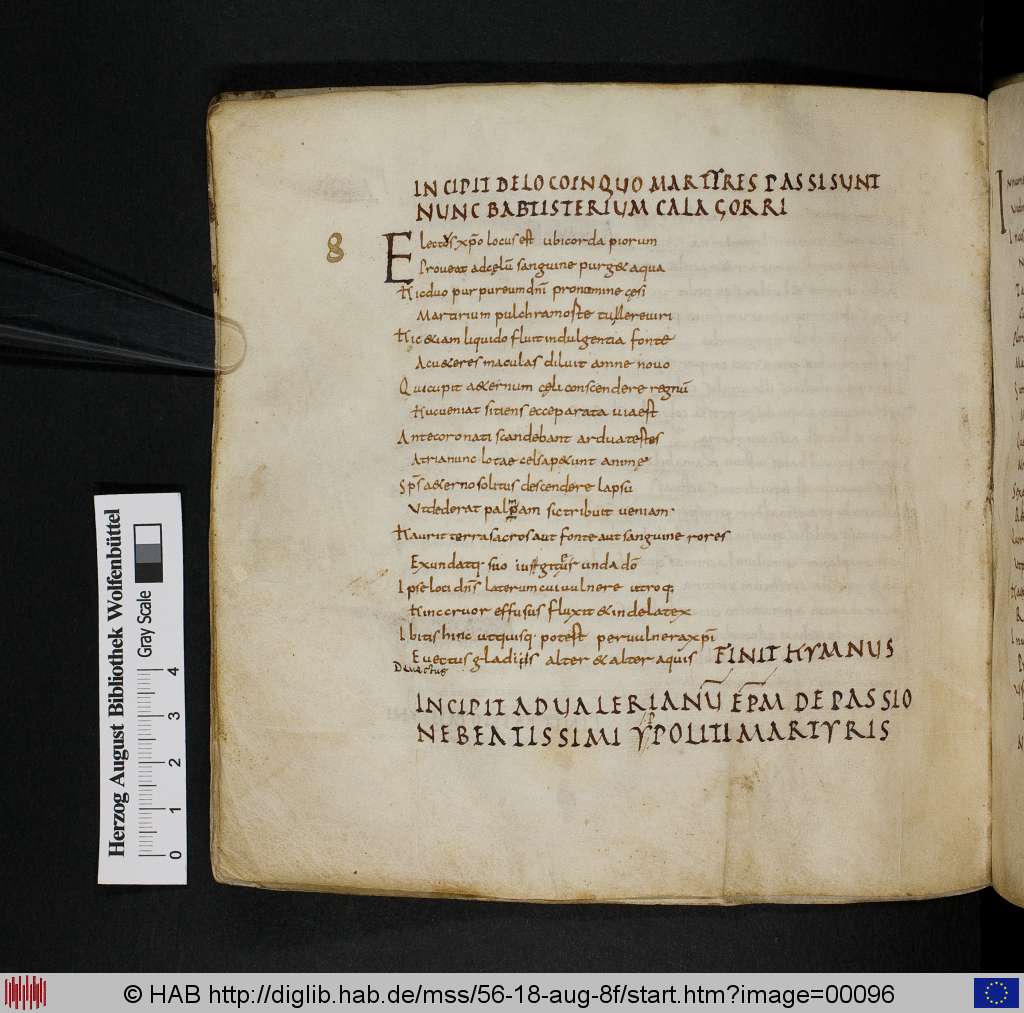 INCIPIT DE LOCO IN QUO MARTYRES PASSI SUNT
NUNC BABTISTERIUM CALAGORRI
8
Electus xp̄o locus est ubi corda piorum
Proveat ad cęlū sanguine purget aqua
Hic duo purpureum dn̄i pro nomine cęsi
Martirium pulchra moste tullere uiri
Hic etiam liquido fluit indulgentia fonte
Ac ueteres maculas diluit amne nouo
Qui cupit aeternum cęli conscendere regnū
Huc ueniat sitiens ecce parata uia est
Ante coronati scandebant ardua testes
Atria nunc lotae celsa petunt animę
Sps aeterno solitus descendere lapsu
Ut dederat palmam sic tribuit ueniam
Haurit terra sacros aut fonte aut sanguine rores
Exundatq· suo iugiter unda dō
Ipse loci dn̄s laterum cui uulnere utroq·
Hinc cruor effusus fluxit et inde latex
Ibitis hinc ut quisq· potest per uulnera xp̄i
Euectus gladiis alter et alter aquis FINIT HYMNUS
Deuectus
INCIPIT AD UALERIANŪ EP̄M DE PASSIO
NE BEATISSIMI YPOLITI MARTYRIS
Herzog August Bibliothek Wolfenbüttel
Gray Scale
0 1 2 3 4
© HAB http://diglib.hab.de/mss/56-18-aug-8f/start.htm?image=00096